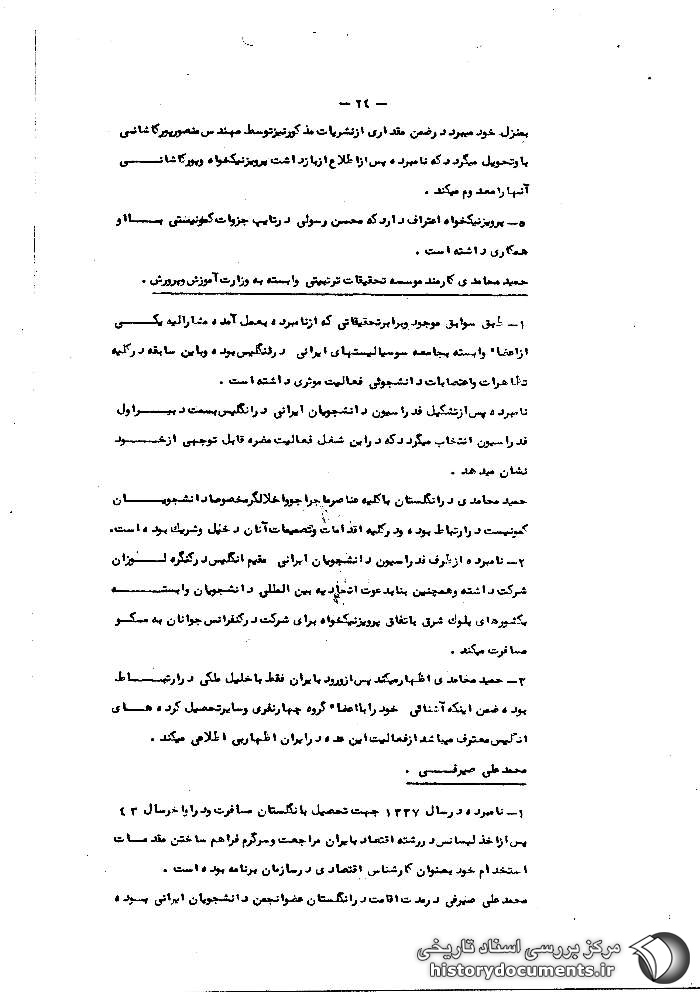 — ٢٤ —
بمنزل خود میبرد درضمن مقداری ازنشریات مذکورنیزتوسط مهندس منصورپورکاشانی
باوتحویل میگرددکه نامبرده پس ازاطلاع ازبازداشت پرویزنیکخواه وپورکاشانـــــی
آنهارامعدوم میکند .
٥ــ پرویزنیکخواه اعتراف داردکه محسن رسولی درتایپ جزوات کمونیستی بـــااو
همکاری داشته است .
حمید محامدی کارمند موسسه تحقیقات تربیتی وابسته به وزارت آموزش وپرورش .
١ــ طبق سوابق موجود وبرابرتحقیقاتی که ازنامبرده بعمل آمده مشارالیه یکـــی
ازاعضاء وابسته بجامعه سوسیالیستهای ایرانی درانگلیس بوده وباین سابقه درکلیه
تظاهرات واعتصابات دانشجوئی فعالیت موثری داشته است .
نامبرده پس ازتشکیل فدراسیون دانشجویان ایرانی درانگلیس بسمت دبیـــراول
فدراسیون انتخاب میگرددکه دراین شغل فعالیت مضره قابل توجهی ازخـــود
نشان میدهد .
حمید محامدی درانگلستان باکلیه عناصرماجراجوواخلالگرمخصوصادانشجویـــان
کمونیست درارتباط بوده ودرکلیه اقدامات وتصمیمات آنان دخیل وشریك بوده است.
٢ــ نامبرده ازطرف فدراسیون دانشجویان ایرانی مقیم انگلیس درکنگره لـــوزان
شرکت داشته وهمچنین بنابدعوت اتحادیه بین المللی دانشجویان وابستـــه
بکشورهای بلوك شرق باتفاق پرویزنیکخواه برای شرکت درکنفرانس جوانان به مسکـو
مسافرت میکند .
٣ــ حمید محامدی اظهارمیکند پس ازورود بایران فقط باخلیل ملکی درارتبـــاط
بوده ضمن اینکه آشنائی خودرابااعضاء گروه چهارنفری وسایرتحصیل کرده هـــای
انگلیس معترف میباشد ازفعالیت این عده درایران اظهاربی اطلاعی میکند .
محمد علی صیرفـــی .
١ــ نامبرده درسال ١٣٣٧ جهت تحصیل بانگلستان مسافرت ودراواخرسال ٤٣
پس ازاخذ لیسانس دررشته اقتصاد بایران مراجعت وسرگرم فراهم ساختن مقدمـات
استخدام خود بعنوان کارشناس اقتصادی درسازمان برنامه بوده است .
محمدعلی صیرفی درمدت اقامت درانگلستان عضوانجمن دانشجویان ایرانی بـوده
مرکز بررسی اسناد تاریخی
historydocuments.ir